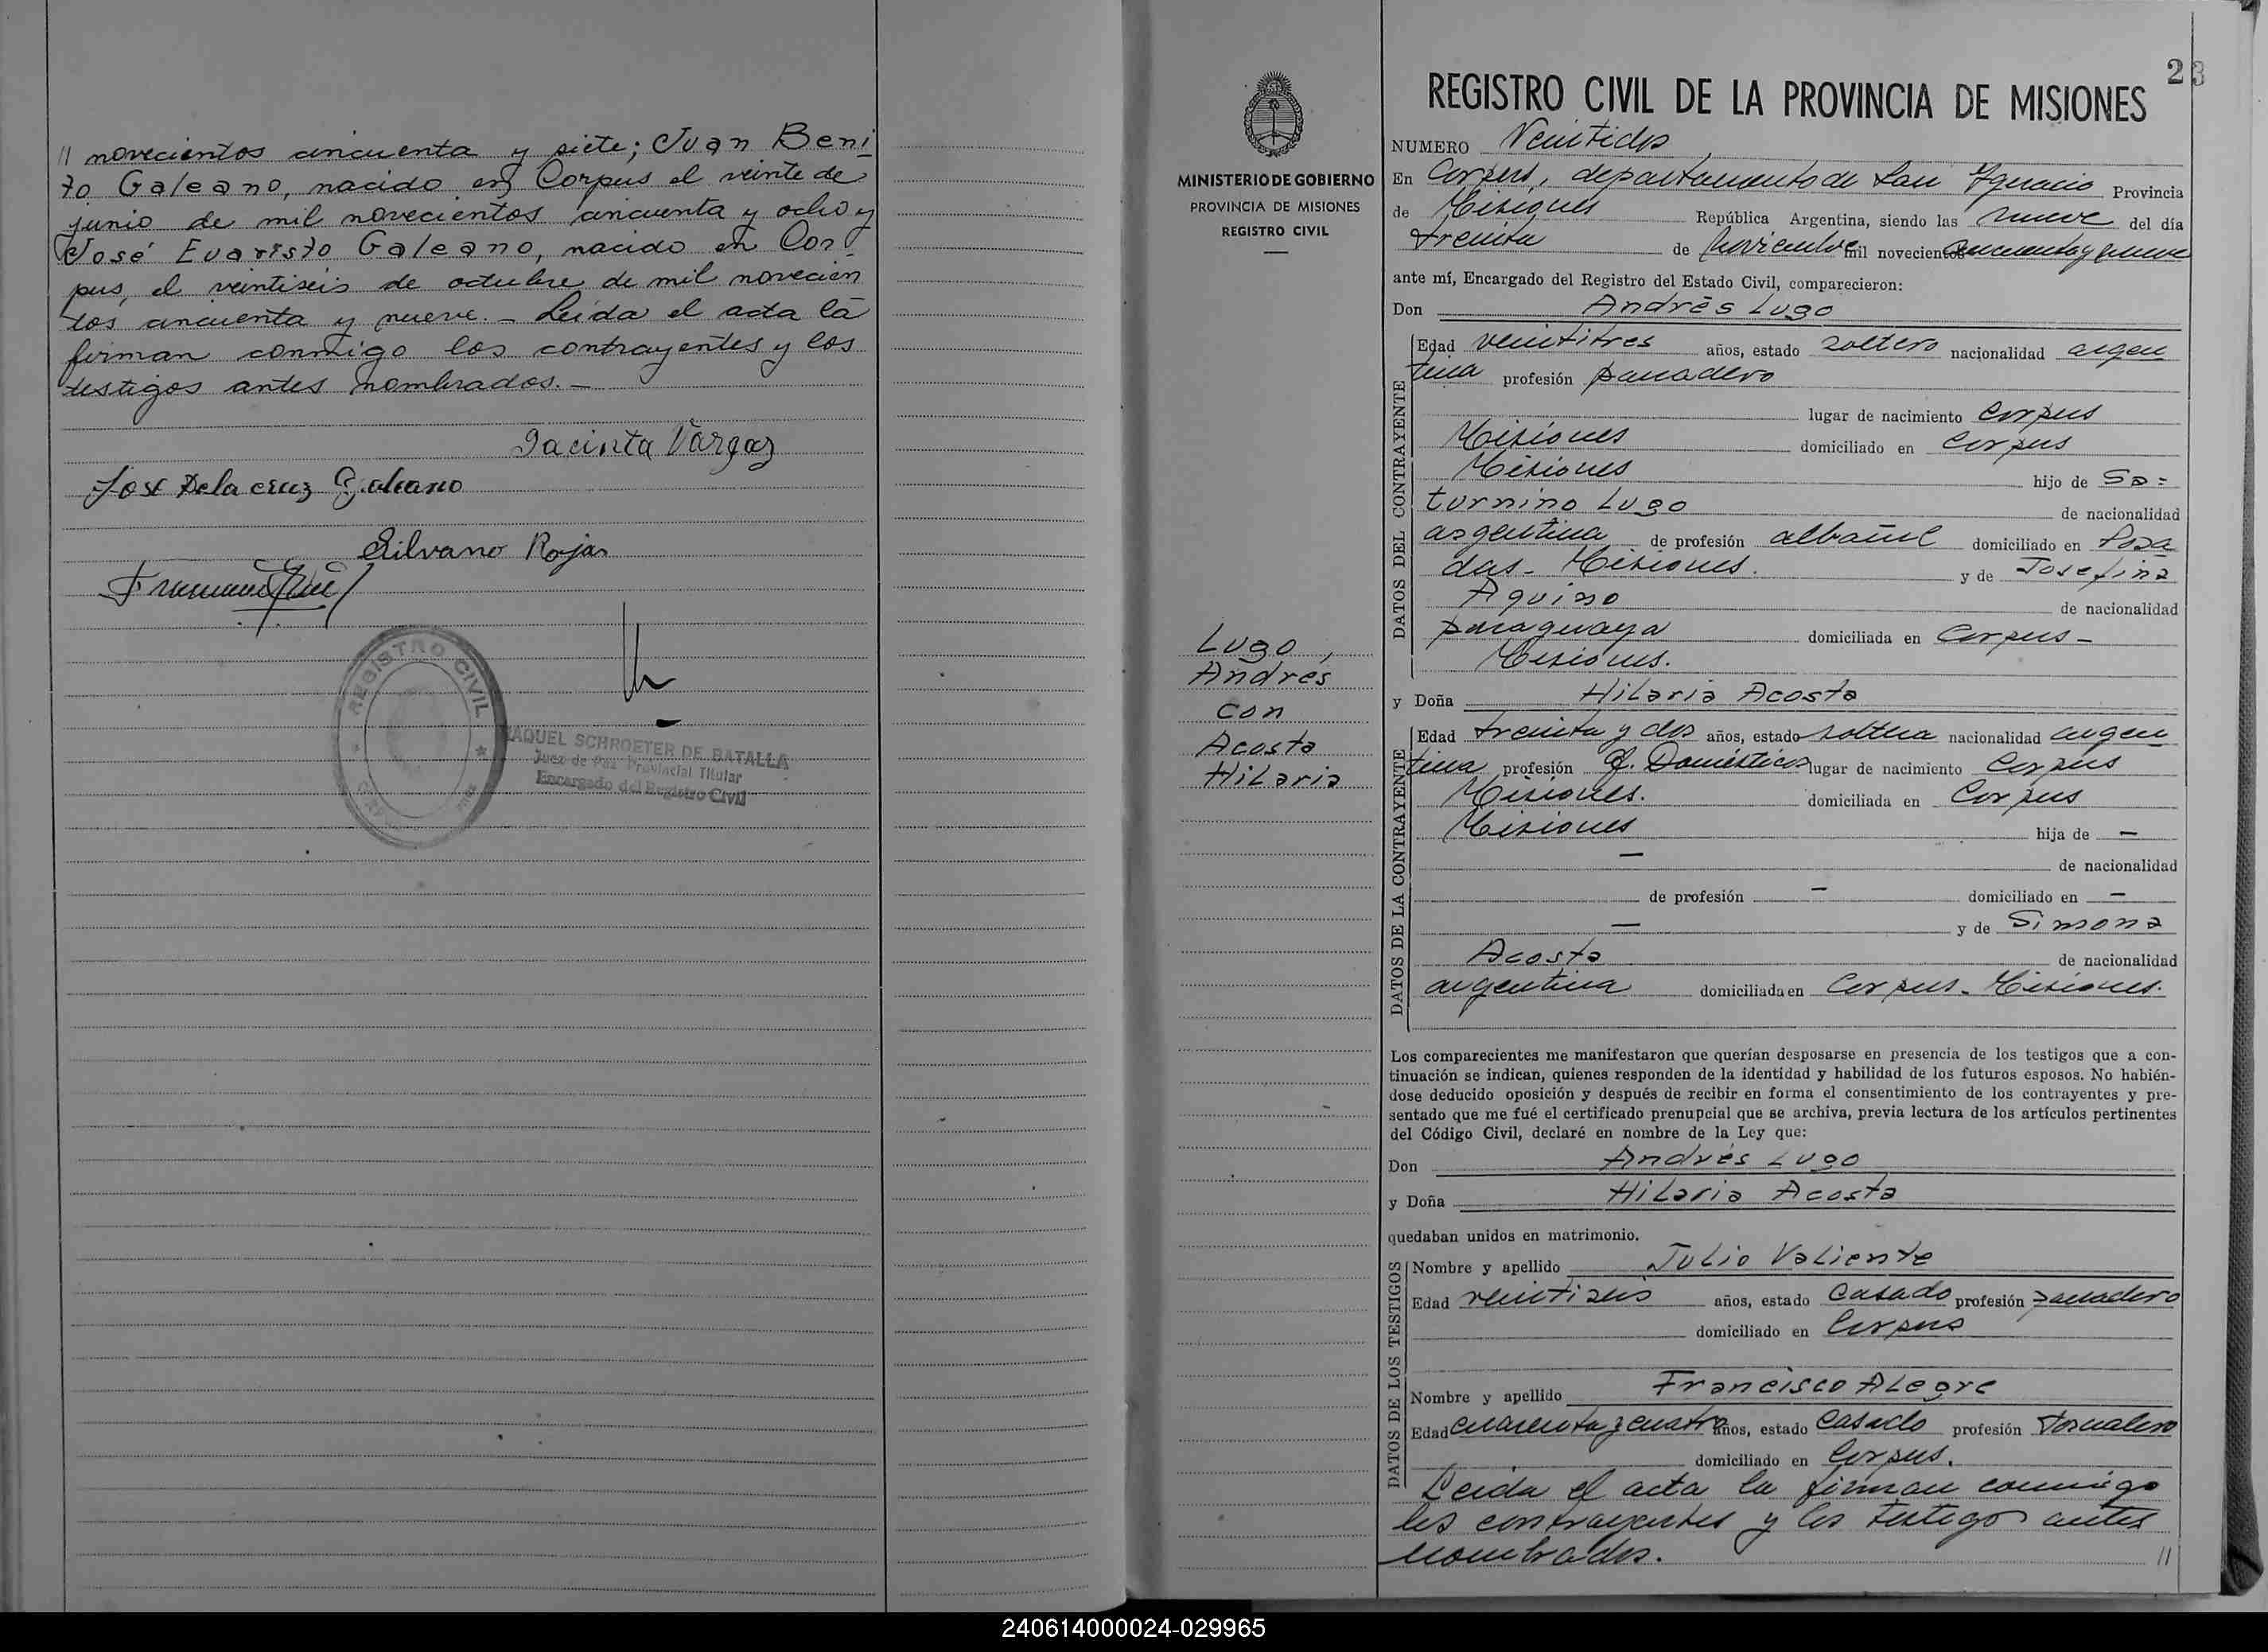 // novecientos cincuenta y siete; Juan Beni
to Galeano, nacido en Corpus el veinte de
junio de mil novecientos cincuenta y ocho y
José Evaristo Galeano, nacido en Cor
pus, el veintiseis de octubre de mil novecien
tos cincuenta y nueve. - Leida el acta la
firman conmigo los contrayentes y los
testigos antes nombrados. -
Jacinta Vargas
José Dela cruz Galeano
Silvano Rojas
REGISTRO CIVIL
RAQUEL SCHROETER DE BATALLA
Juez de Paz Provincial Titular
Encargado del Registro Civil
MINISTERIO DE GOBIERNO
PROVINCIA DE MISIONES
REGISTRO CIVIL
Lugo,
Andrés
con
Acosta
Hilaria
23
REGISTRO CIVIL DE LA PROVINCIA DE MISIONES
NUMERO Veintidos
En Corpus, departamento de San Ignacio Provincia
de Misiones República Argentina, siendo las nueve del día
treinta de Noviembre mil novecientos cincuenta y nueve
ante mí, Encargado del Registro del Estado Civil, comparecieron:
Don Andrés Lugo
DATOS DEL CONTRAYENTE
Edad veintitres años, estado soltero nacionalidad argen
tina profesión panadero
lugar de nacimiento Corpus
Misiones domiciliado en Corpus
Misiones hijo de Sa=
turnino Lugo de nacionalidad
argentina de profesión albañil domiciliado en Posa
das - Misiones. y de Josefina
Aquino de nacionalidad
paraguaya domiciliada en Corpus -
Misiones.
y Doña Hilaria Acosta
DATOS DE LA CONTRAYENTE
Edad treinta y dos años, estado soltera nacionalidad argen
tina profesión Q. Domésticos lugar de nacimiento Corpus
Misiones. domiciliada en Corpus
Misiones hija de —
— de nacionalidad
de profesión — domiciliado en —
— y de Simona
Acosta de nacionalidad
argentina domiciliada en Corpus - Misiones.
Los comparecientes me manifestaron que querían desposarse en presencia de los testigos que a con-
tinuación se indican, quienes responden de la identidad y habilidad de los futuros esposos. No habién-
dose deducido oposición y después de recibir en forma el consentimiento de los contrayentes y pre-
sentado que me fué el certificado prenupcial que se archiva, previa lectura de los artículos pertinentes
del Código Civil, declaré en nombre de la Ley que:
Don Andrés Lugo
y Doña Hilaria Acosta
quedaban unidos en matrimonio.
DATOS DE LOS TESTIGOS
Nombre y apellido Julio Valiente
Edad veintiseis años, estado Casado profesión panadero
domiciliado en Corpus
Nombre y apellido Francisco Alegre
Edad cuarenta y cuatro años, estado Casado profesión Jornalero
domiciliado en Corpus.
Leida el acta la firman conmigo
los contrayentes y los testigos antes
nombrados. //
240614000024-029965